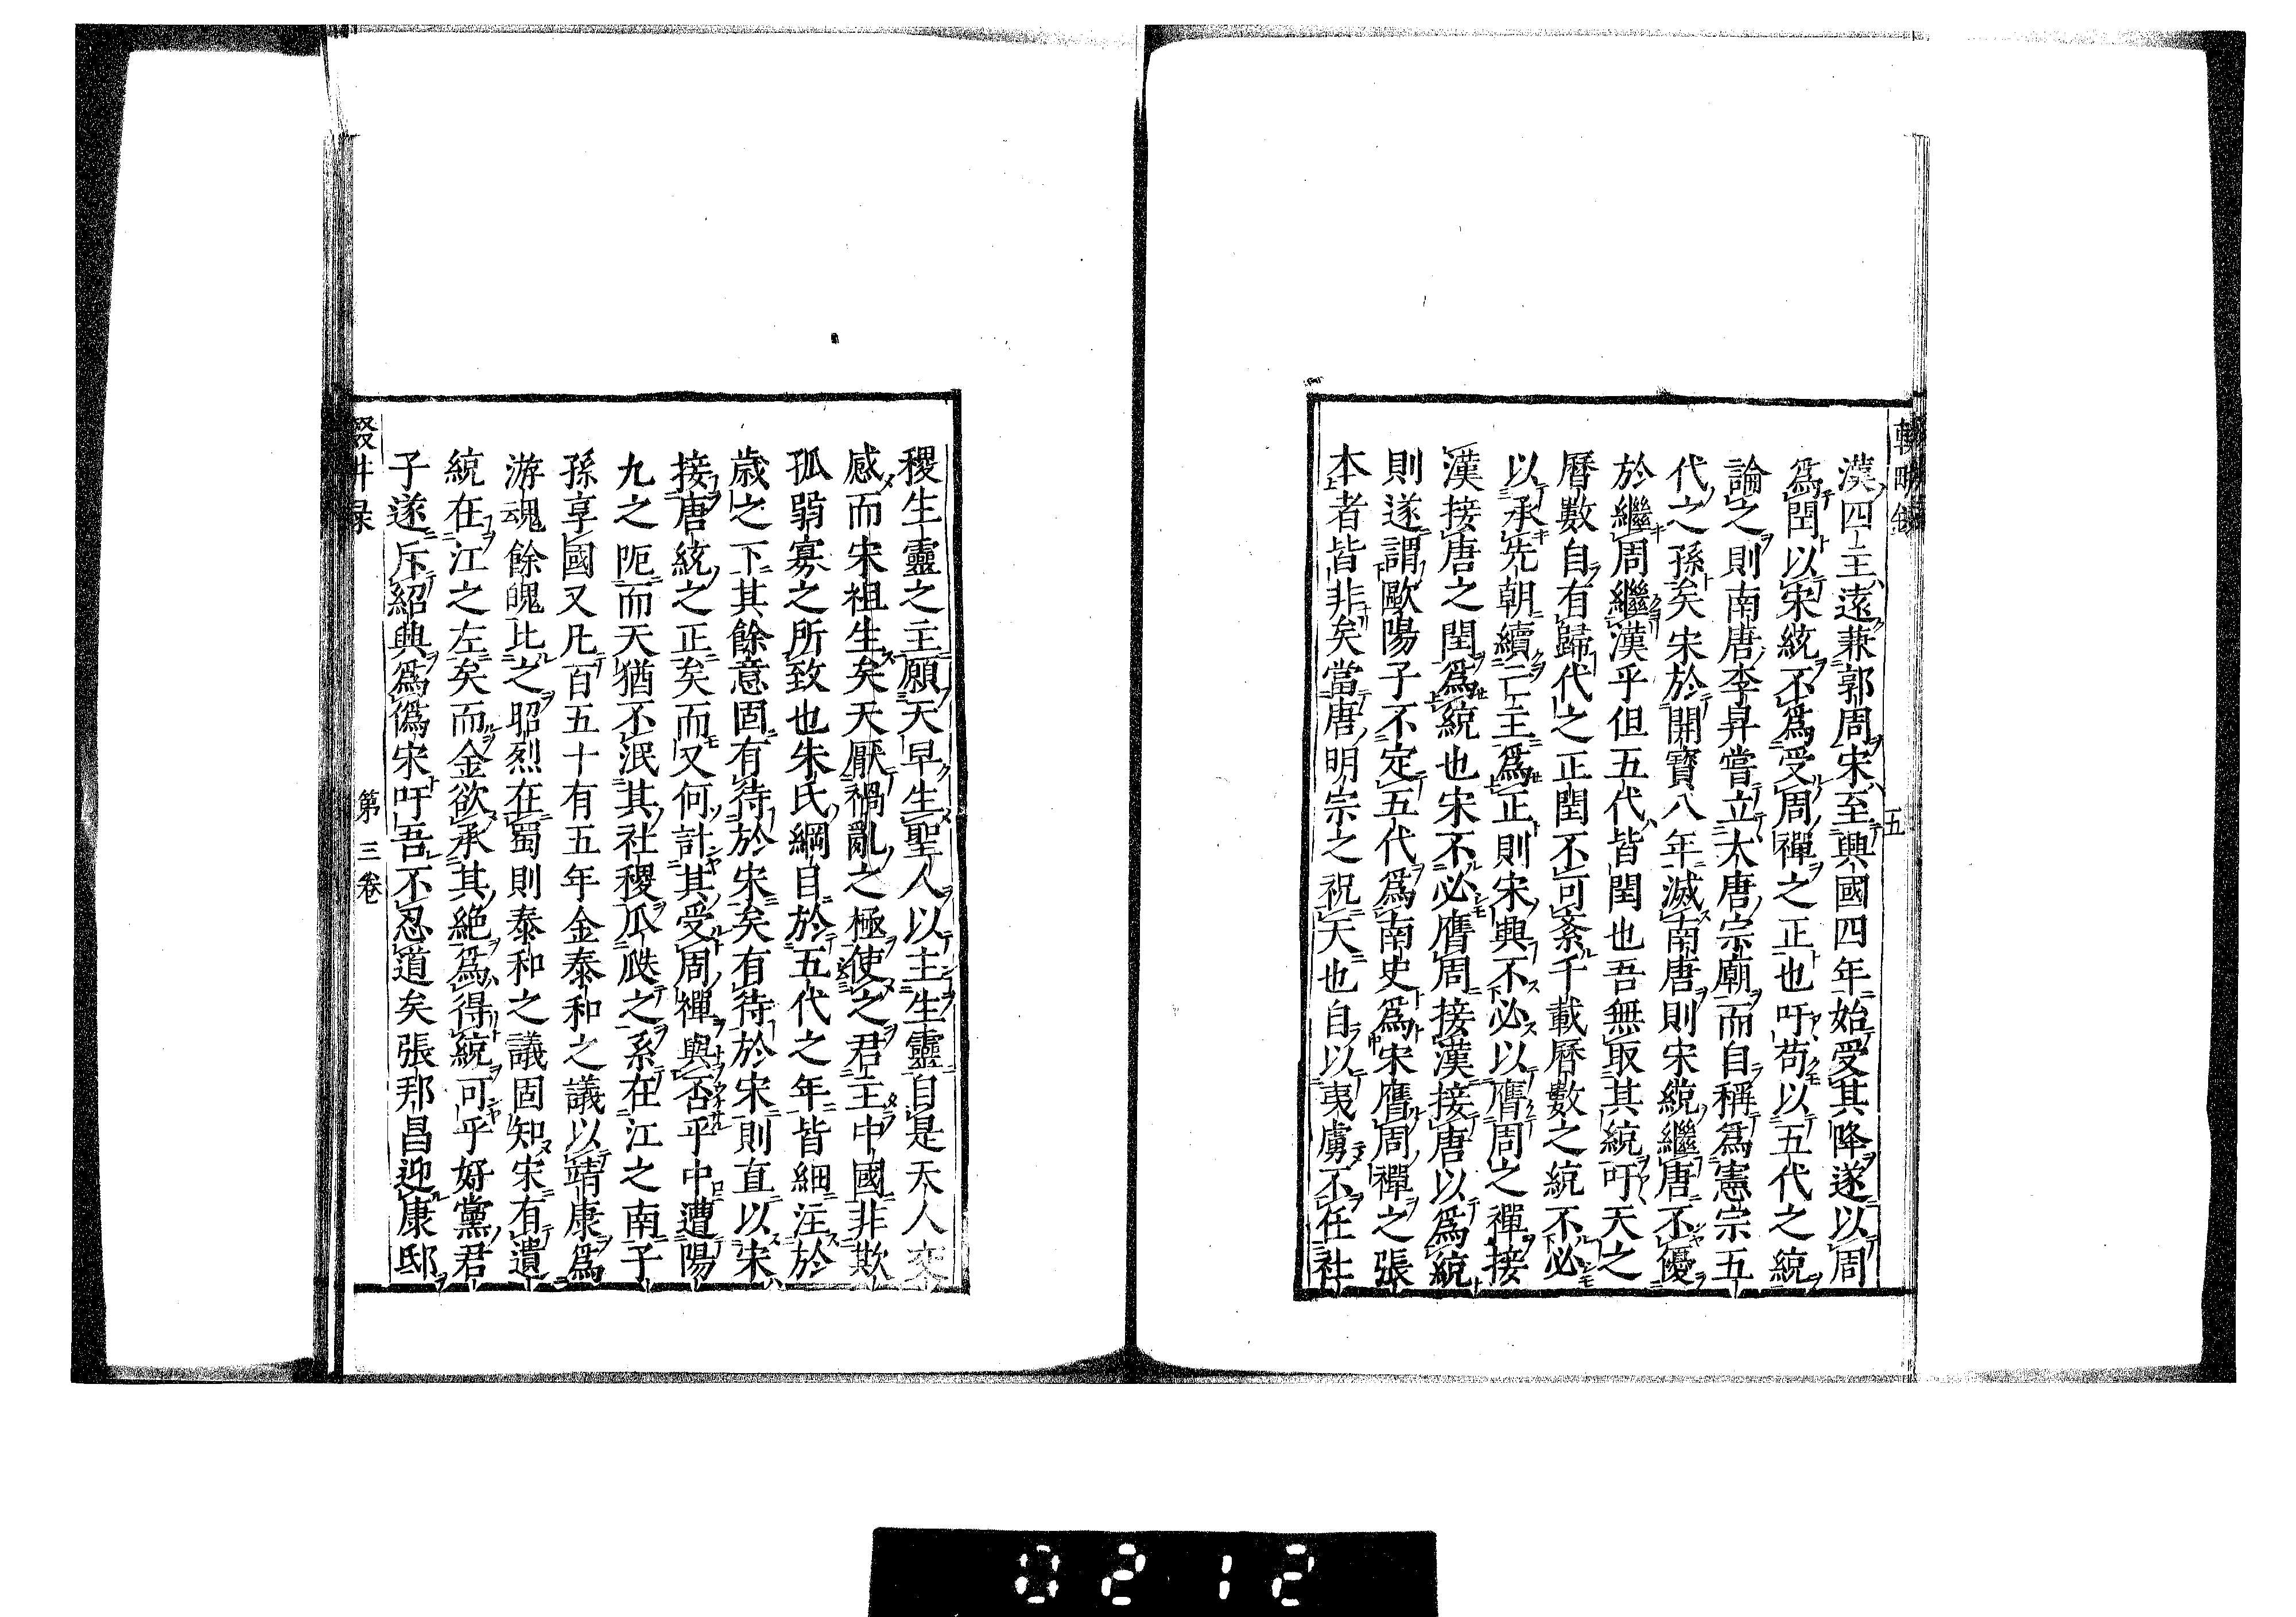 五
漢四主遠兼郭周宋至興國四年始受其降遂以周
爲閏以宋統不爲受周禪之正也吁苟以五代之統
論之則南唐李昇嘗立大唐宗廟而自稱爲憲宗五
代之孫矣宋於開寶八年滅南唐則宋統繼唐不優
於繼周繼漢乎但五代皆閏也吾無取其統吁天之
曆數自有歸代之正閏不可紊千載曆數之統不必
以承先朝續亡主爲正則宋興不必以膺周之禪接
漢接唐之閏爲統也宋不必膺周接漢接唐以爲統
則遂謂歐陽子不定五代爲南史爲宋膺周禪之張
本者皆非矣當唐明宗之祝天也自以夷虜不任社
稷生靈之主願天早生聖人以主生靈自是天人交
感而宋祖生矣天厭禍亂之極使之君主中國非欺
孤弱寡之所致也朱氏綱目於五代之年皆細注於
歲之下其餘意固有待於宋矣有待於宋則直以宋
接唐統之正矣而又何計其受周禪與否乎中遭陽
九之阨而天猶不泯其社稷瓜瓞之系在江之南子
孫享國又凡百五十有五年金泰和之議以靖康爲
游魂餘魄比之昭烈在蜀則泰和之議固知宋有遺
統在江之左矣而金欲承其絶爲得統可乎好黨君
子遂斥紹興爲僞宋吁吾不忍道矣張邦昌迎康邸
第三卷
0212